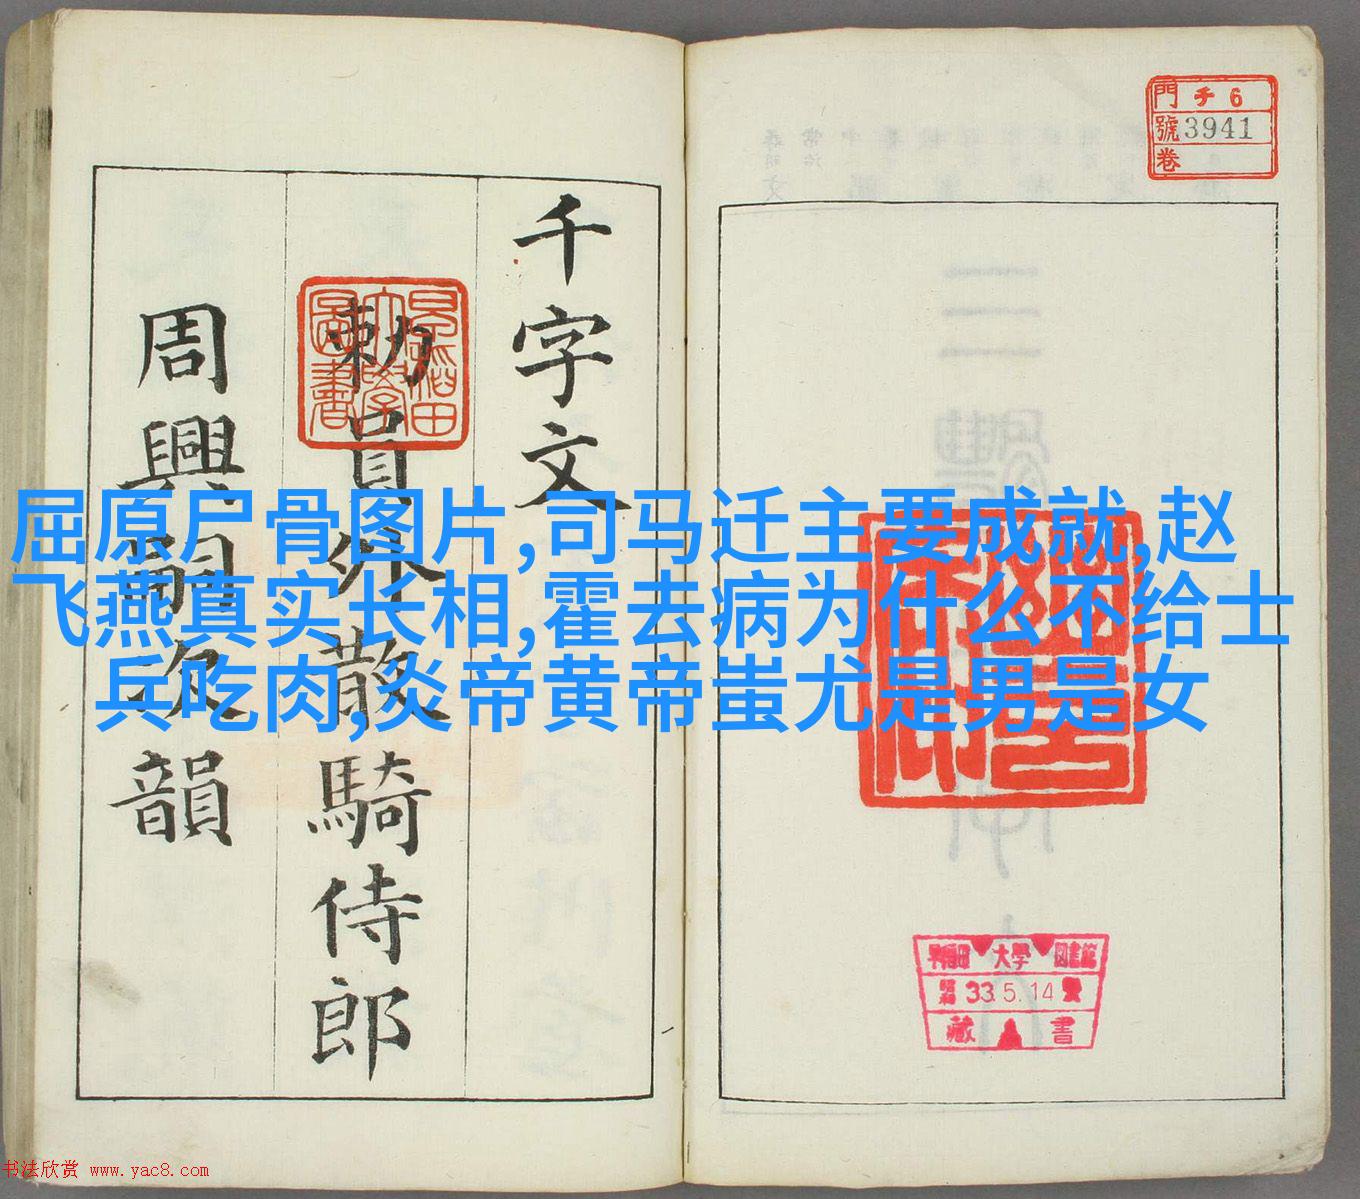 門 チ 6
號 3941
卷
千字文
勅員外散騎侍郎
周興嗣次韻
早稲田大學圖書
屈原尸骨图片,司马迁主要成就,赵
飞燕真实长相,霍去病为什么不给士
兵吃肉,炎帝黄帝蚩尤是男是女
早稲田 大學 図書館
昭和 33.5.14
藏 書
书法欣赏 www.yac8.com